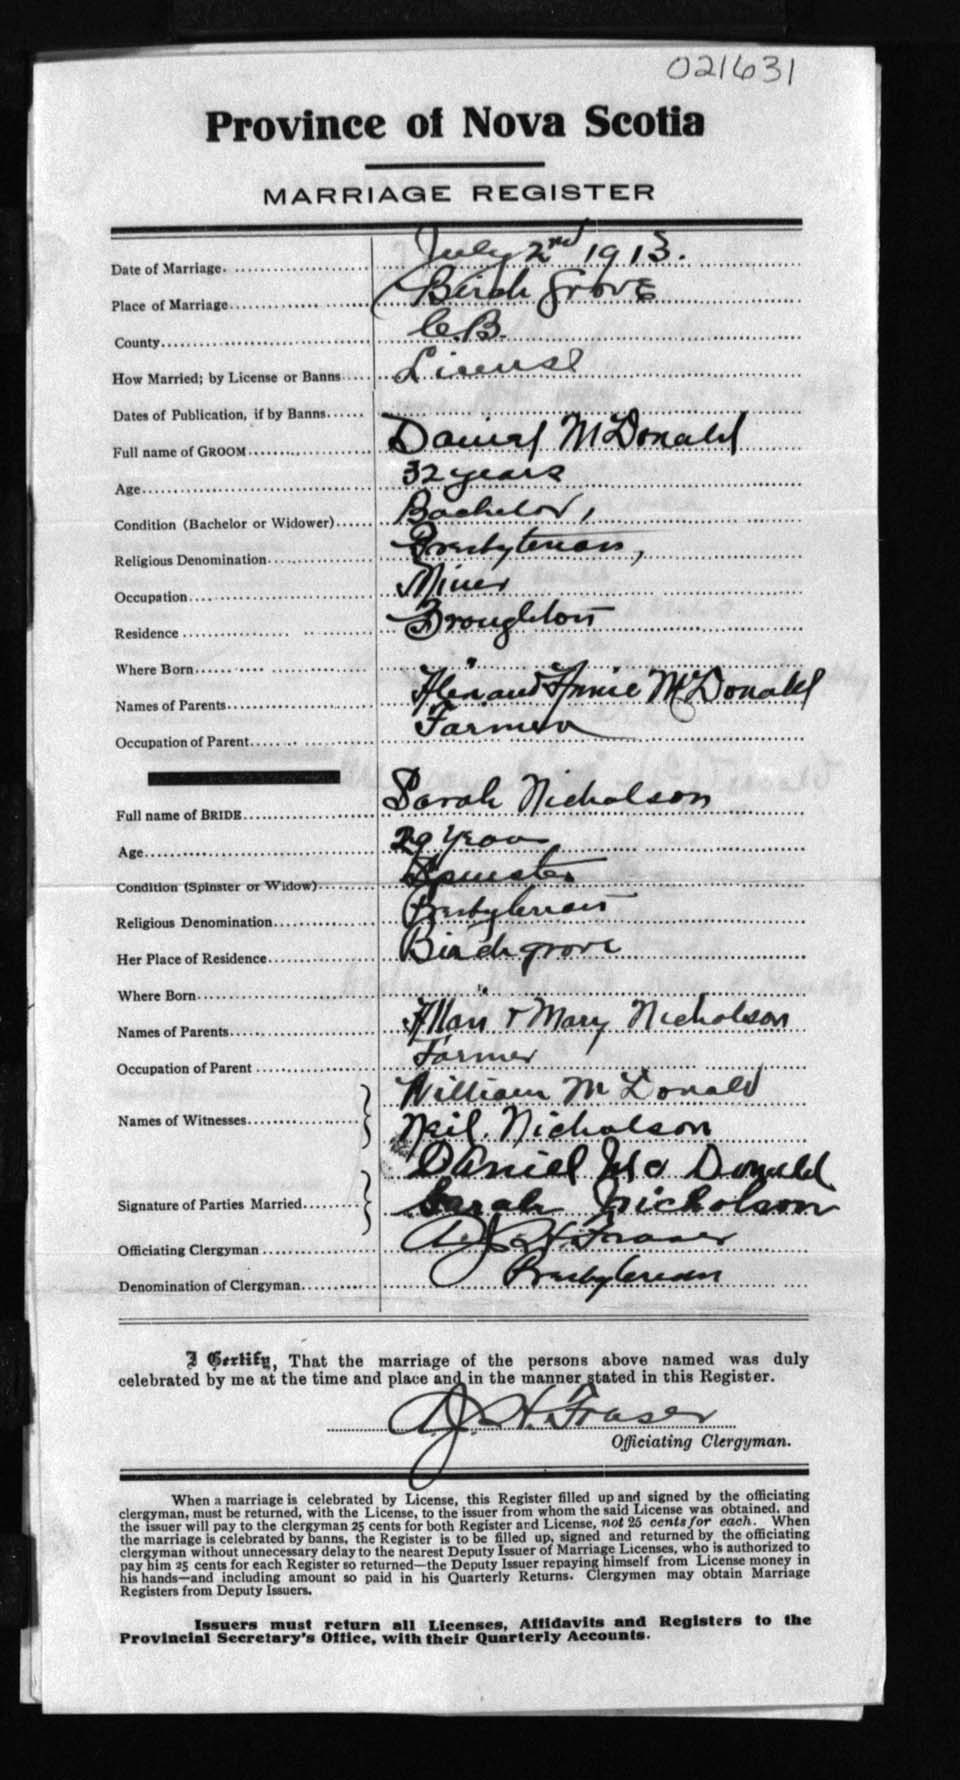 021631
Province of Nova Scotia
MARRIAGE REGISTER
Date of Marriage. July 2nd 1913.
Place of Marriage Birch Grove
County C.B.
How Married; by License or Banns License
Dates of Publication, if by Banns
Full name of GROOM Daniel McDonald
Age 32 years
Condition (Bachelor or Widower) Bachelor,
Religious Denomination Presbyterian,
Occupation Miner
Residence Broughton
Where Born "
Names of Parents Alex. and Annie McDonald
Occupation of Parent Farmer
Full name of BRIDE Sarah Nicholson
Age 29 years
Condition (Spinster or Widow) Spinster
Religious Denomination Presbyterian
Her Place of Residence Birchgrove
Where Born "
Names of Parents Allan & Mary Nicholson
Occupation of Parent Farmer
William McDonald
Names of Witnesses
Neil. Nicholson
Daniel Mc Donald
Signature of Parties Married Sarah Nicholson
Officiating Clergyman A.J. H. Fraser
Denomination of Clergyman Presbyterian
I Certify, That the marriage of the persons above named was duly
celebrated by me at the time and place and in the manner stated in this Register.
A.J. H. Fraser
Officiating Clergyman.
When a marriage is celebrated by License, this Register filled up and signed by the officiating
clergyman, must be returned, with the License, to the issuer from whom the said License was obtained, and
the issuer will pay to the clergyman 25 cents for both Register and License, not 25 cents for each. When
the marriage is celebrated by banns, the Register is to be filled up, signed and returned by the officiating
clergyman without unnecessary delay to the nearest Deputy Issuer of Marriage Licenses, who is authorized to
pay him 25 cents for each Register so returned—the Deputy Issuer repaying himself from License money in
his hands—and including amount so paid in his Quarterly Returns. Clergymen may obtain Marriage
Registers from Deputy Issuers.
Issuers must return all Licenses, Affidavits and Registers to the
Provincial Secretary's Office, with their Quarterly Accounts.